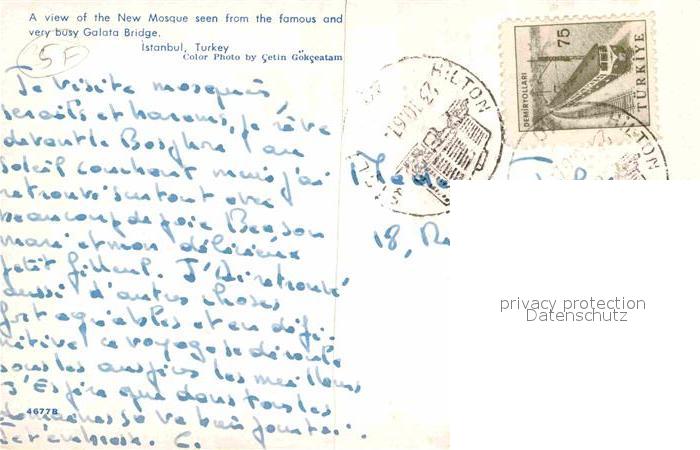 A view of the New Mosque seen from the famous and
very busy Galata Bridge.
Istanbul, Turkey
Color Photo by Çetin Gökçeatam
5F
Je visite mosquées,
sérails et harems, je rêve
devant le Bosphore au
soleil couchant mais j'ai
retrouvé surtout avec
beaucoup de joie son
mari et mon délicieux
petit filleul. J'ai retrouvé
aussi d'autres choses
fort agréables et en défi-
nitive ce voyage se déroule
sous les auspices les meilleurs
J'espère que dans tous les
domaines va bien pour toi.
Je t'embrasse. C.
4677B
HILTON
23.10.67
75
DEMİRYOLLARI
TÜRKİYE
HILTON
18,
privacy protection
Datenschutz